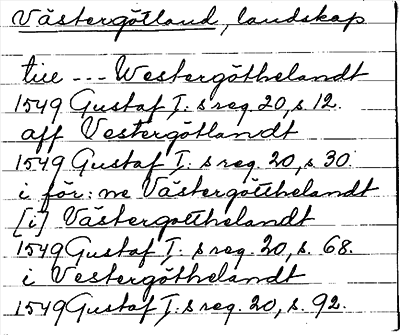 Västergötland, landskap
till --- Westergöthelandt
1549 Gustaf I:s reg. 20, s 12.
aff Vestergötlandt
1549 Gustaf I:s reg. 20, s. 30.
i för:ne Västergötthelandt
[i] Västergotthelandt
1549 Gustaf I:s reg. 20, s. 68.
i Vestergöthelandt
1549 Gustaf I:s reg. 20, s. 92.